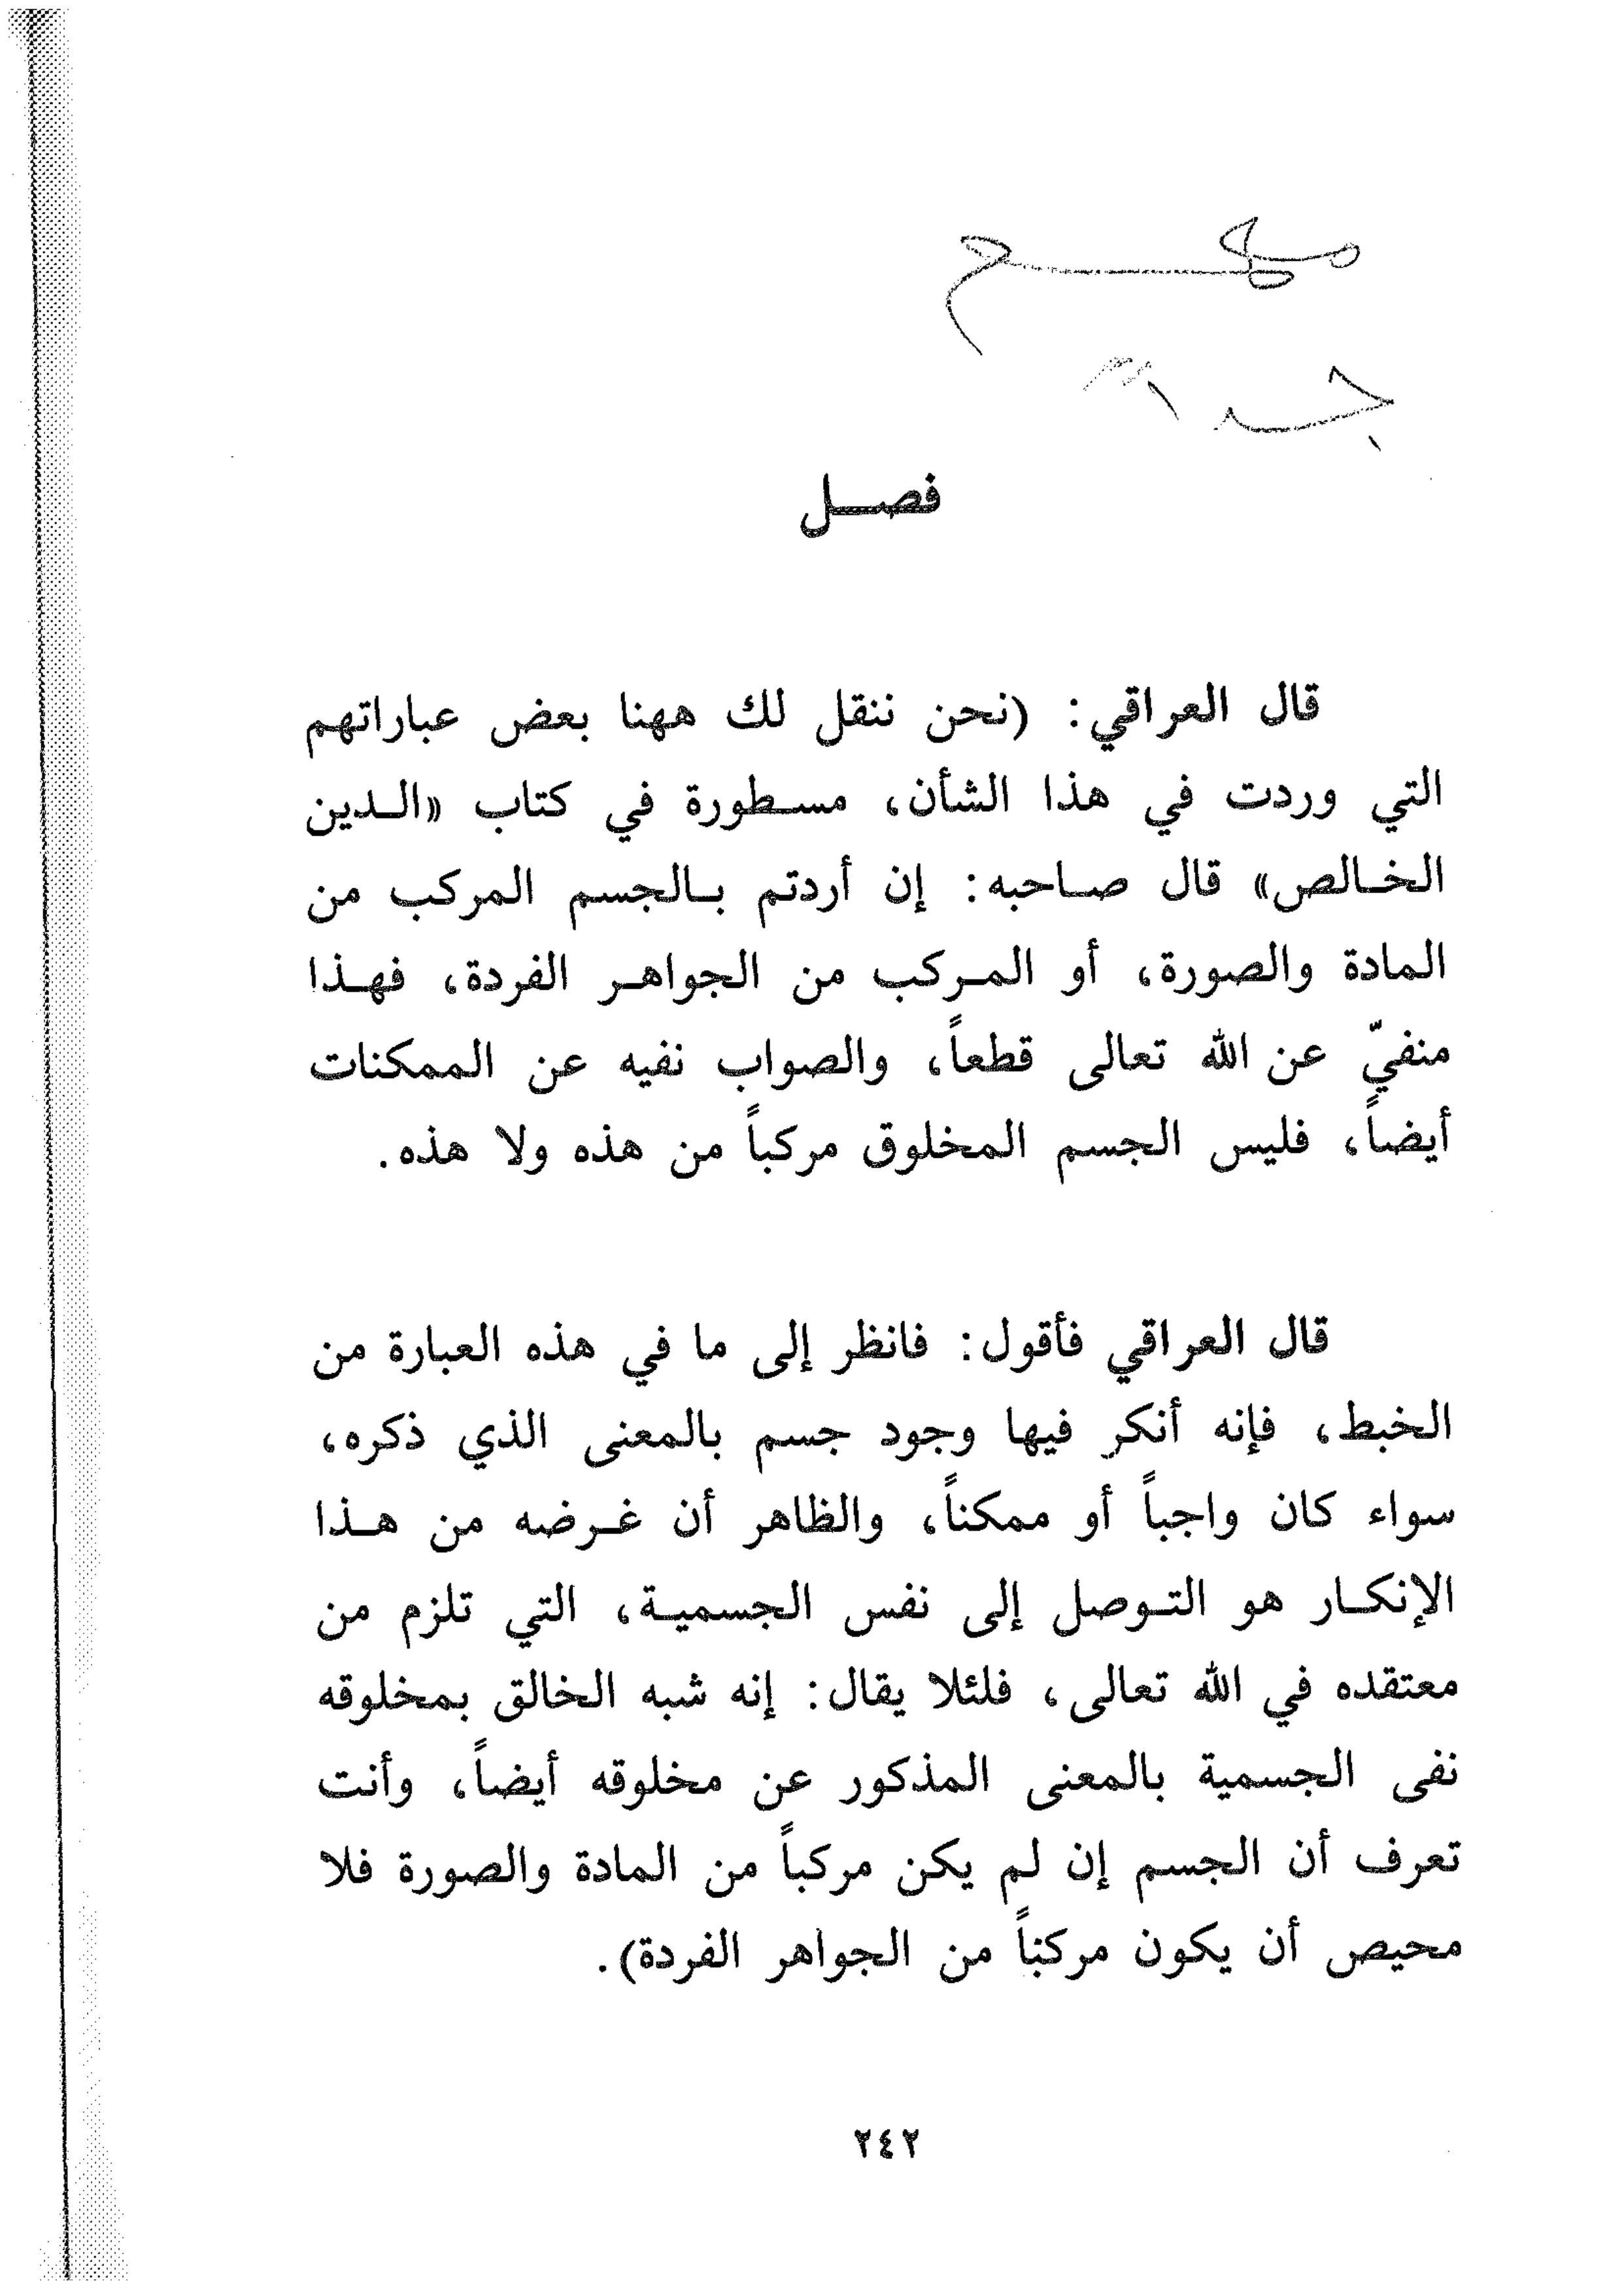 مهم
جدا
فصل
قال العراقي: (نحن ننقل لك ههنا بعض عباراتهم
التي وردت في هذا الشأن، مسطورة في كتاب «الدين
الخالص» قال صاحبه: إن أردتم بالجسم المركب من
المادة والصورة، أو المركب من الجواهر الفردة، فهذا
منفيّ عن الله تعالى قطعاً، والصواب نفيه عن الممكنات
أيضاً، فليس الجسم المخلوق مركباً من هذه ولا هذه.
قال العراقي فأقول: فانظر إلى ما في هذه العبارة من
الخبط، فإنه أنكر فيها وجود جسم بالمعنى الذي ذكره،
سواء كان واجباً أو ممكناً، والظاهر أن غرضه من هذا
الإنكار هو التوصل إلى نفس الجسمية، التي تلزم من
معتقده في الله تعالى، فلئلا يقال: إنه شبه الخالق بمخلوقه
نفى الجسمية بالمعنى المذكور عن مخلوقه أيضاً، وأنت
تعرف أن الجسم إن لم يكن مركباً من المادة والصورة فلا
محيص أن يكون مركباً من الجواهر الفردة).
٢٤٢